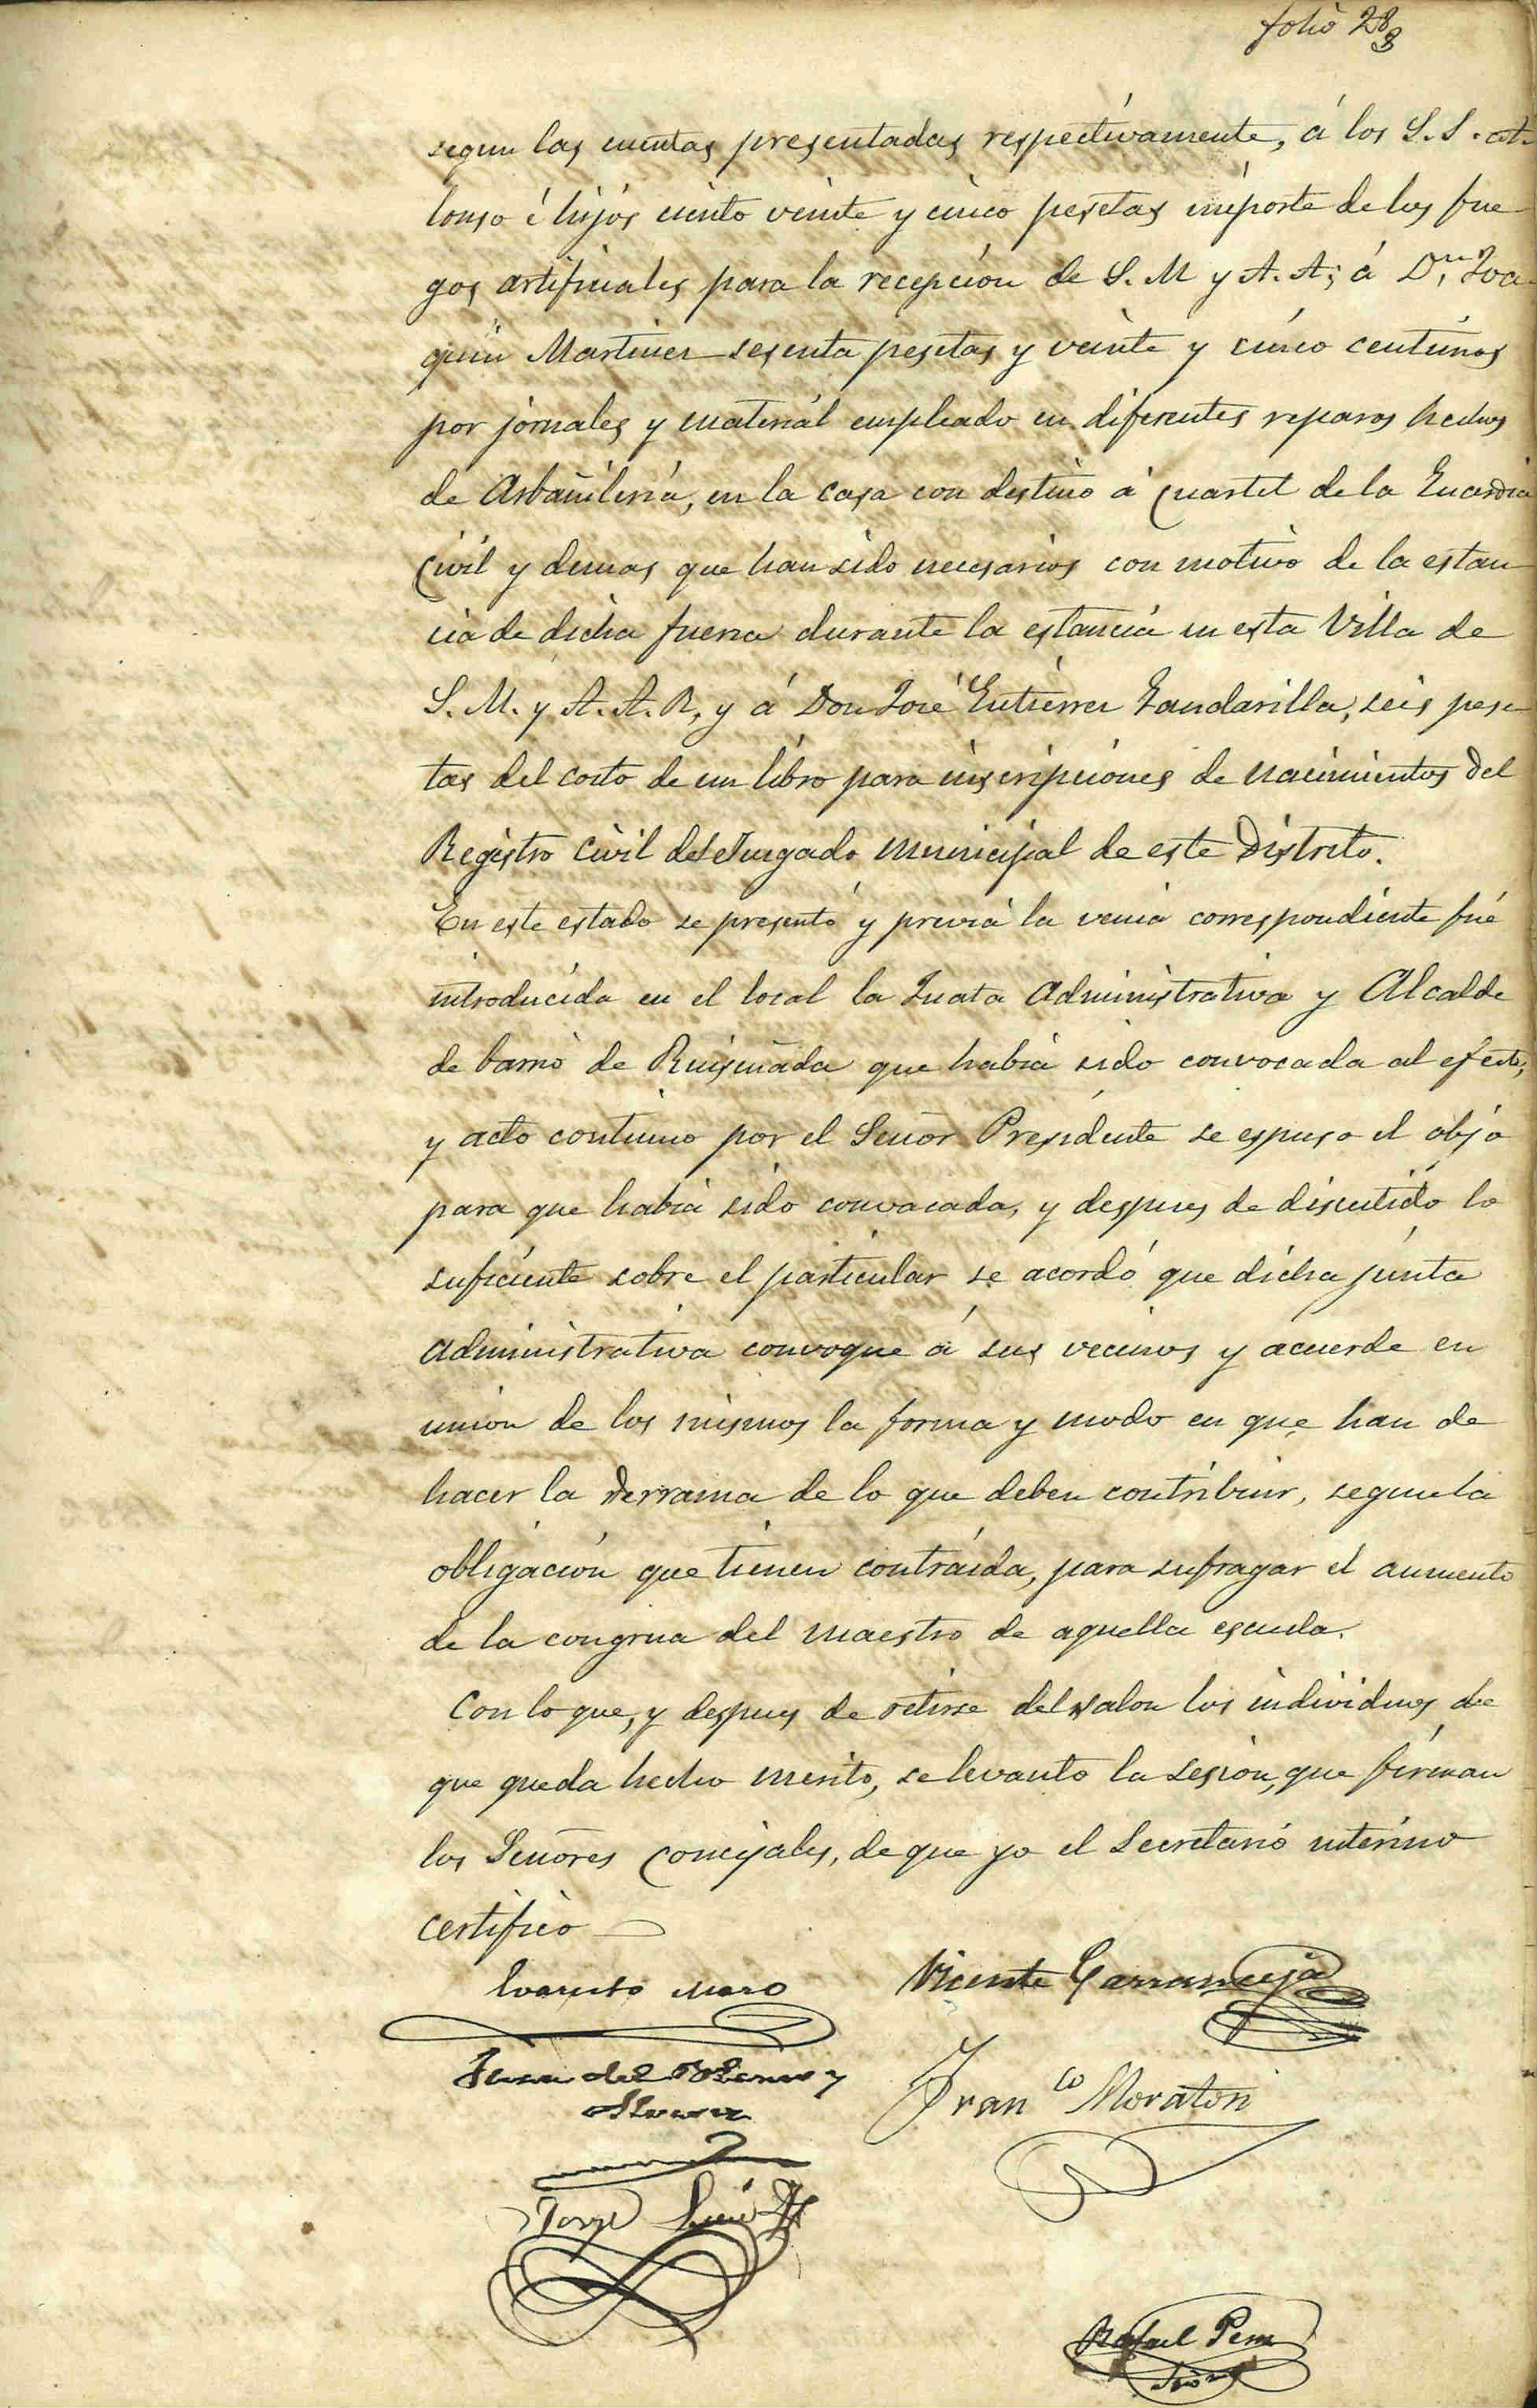 folio 28
segun las cuentas presentadas respectivamente, á los S.S. Al-
lonso é hijos ciento veinte y cinco pesetas importe de los fue
gos artificiales para la recepcion de S. M y A. A; á Dn. Joa-
quin Martinez sesenta pesetas y veinte y cinco centimos
por jornales y material empleado en diferentes reparos hechos
de Arbañileria, en la casa con destino á Cuartel de la Guardia
Civil y demas que han sido necesarios con motivo de la estan
cia de dicha fuerza durante la estancia en esta Villa de
S. M. y A. A. R, y á Don José Gutierrez Gandarilla, seis pese
tas del costo de un libro para inscripciones de nacimientos del
Registro Civil del Juzgado Municipal de este Distrito.
En este estado se presentó y previa la venia correspondiente fué
introducida en el local la Junta Administrativa y Alcalde
de barrio de Ruiseñada que habia sido convocada al efecto,
y acto continuo por el Señor Presidente se espuso el objo
para que habia sido convocada, y despues de discutido lo
suficiente sobre el particular se acordó que dicha junta
administrativa convoque á sus vecinos y acuerde en
union de los mismos la forma y modo en que han de
hacer la derrama de lo que deben contribuir, segun la
obligacion que tienen contraida, para sufragar el aumento
de la congrua del maestro de aquella escuela.
Con lo que, y despues de retirse del salon los individuos de
que queda hecho merito, se levanto la sesion, que firman
los Señores Concejales, de que yo el Secretario interino
certifico
Evaristo Vicente Carranceja
Juan del y
Franco Moraton
Jorge
Rafael Perez